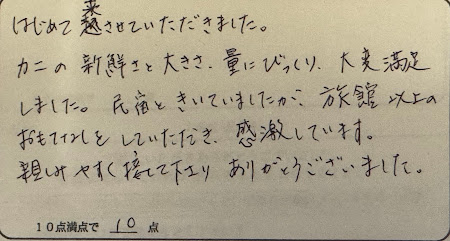 はじめて来館させていただきました。
カニの新鮮さと大きさ、量にびっくり、大変満足
しました。民宿ときいていましたが、旅館以上の
おもてなしをしていただき、感激しています。
親しみやすく接して下さり ありがとうございました。
10点満点で 10 点